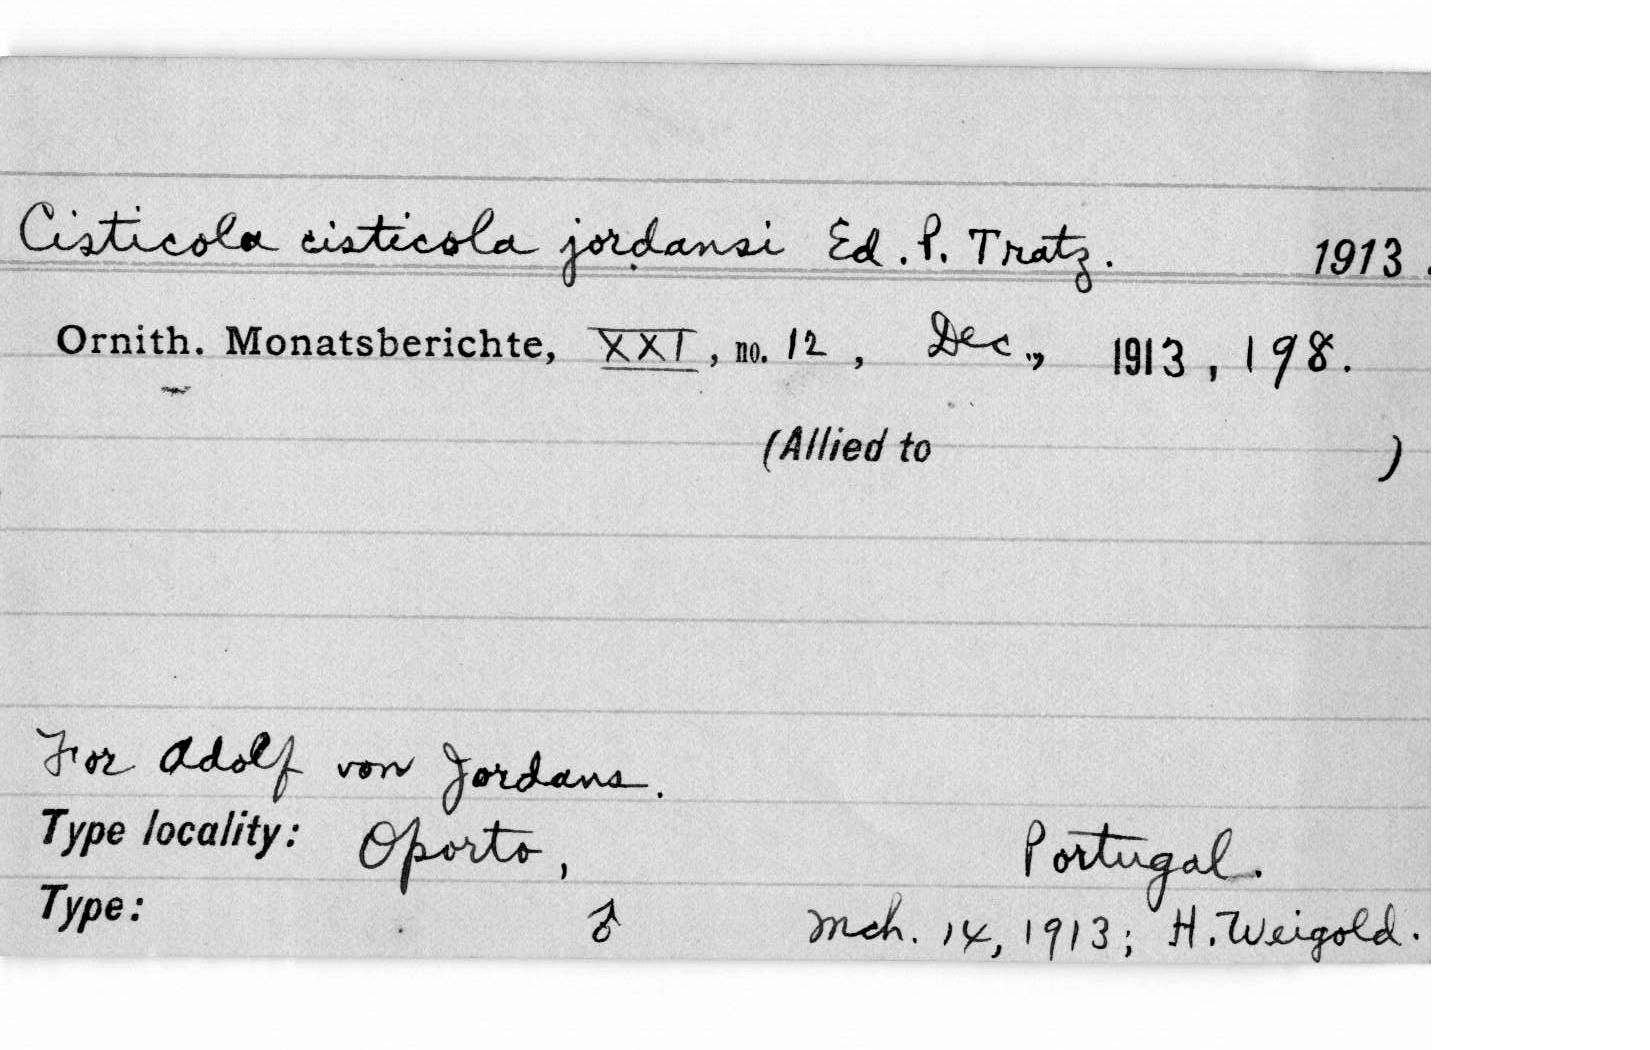 Cisticola cisticola jordansi Ed. P. Tratz. 1913.
Ornith. Monatsberichte, XXI, no. 12, Dec., 1913, 198.
(Allied to )
For Adolf von Jordans.
Type locality: Oporto, Portugal.
Type: ♂ Mch. 14, 1913; H. Weigold.